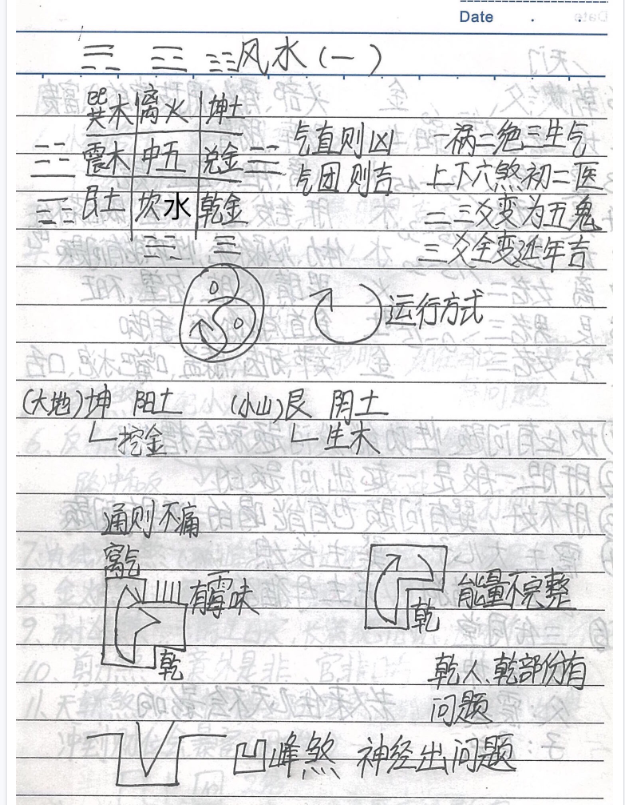 Date
风水(一)
巽木 离火 坤土
震木 中五 兑金
艮土 坎水 乾金
气直则凶
气团则吉
一祸二绝三生气
上下六煞初二医
二三爻变为五鬼
三爻全变延年吉
运行方式
(大地)坤 阳土 (小山)艮 阴土
挖金 生木
通则不痛
离乞
有霉味
乾
能量不完整
乾
乾人、乾部份有
问题
凹峰煞 神经出问题